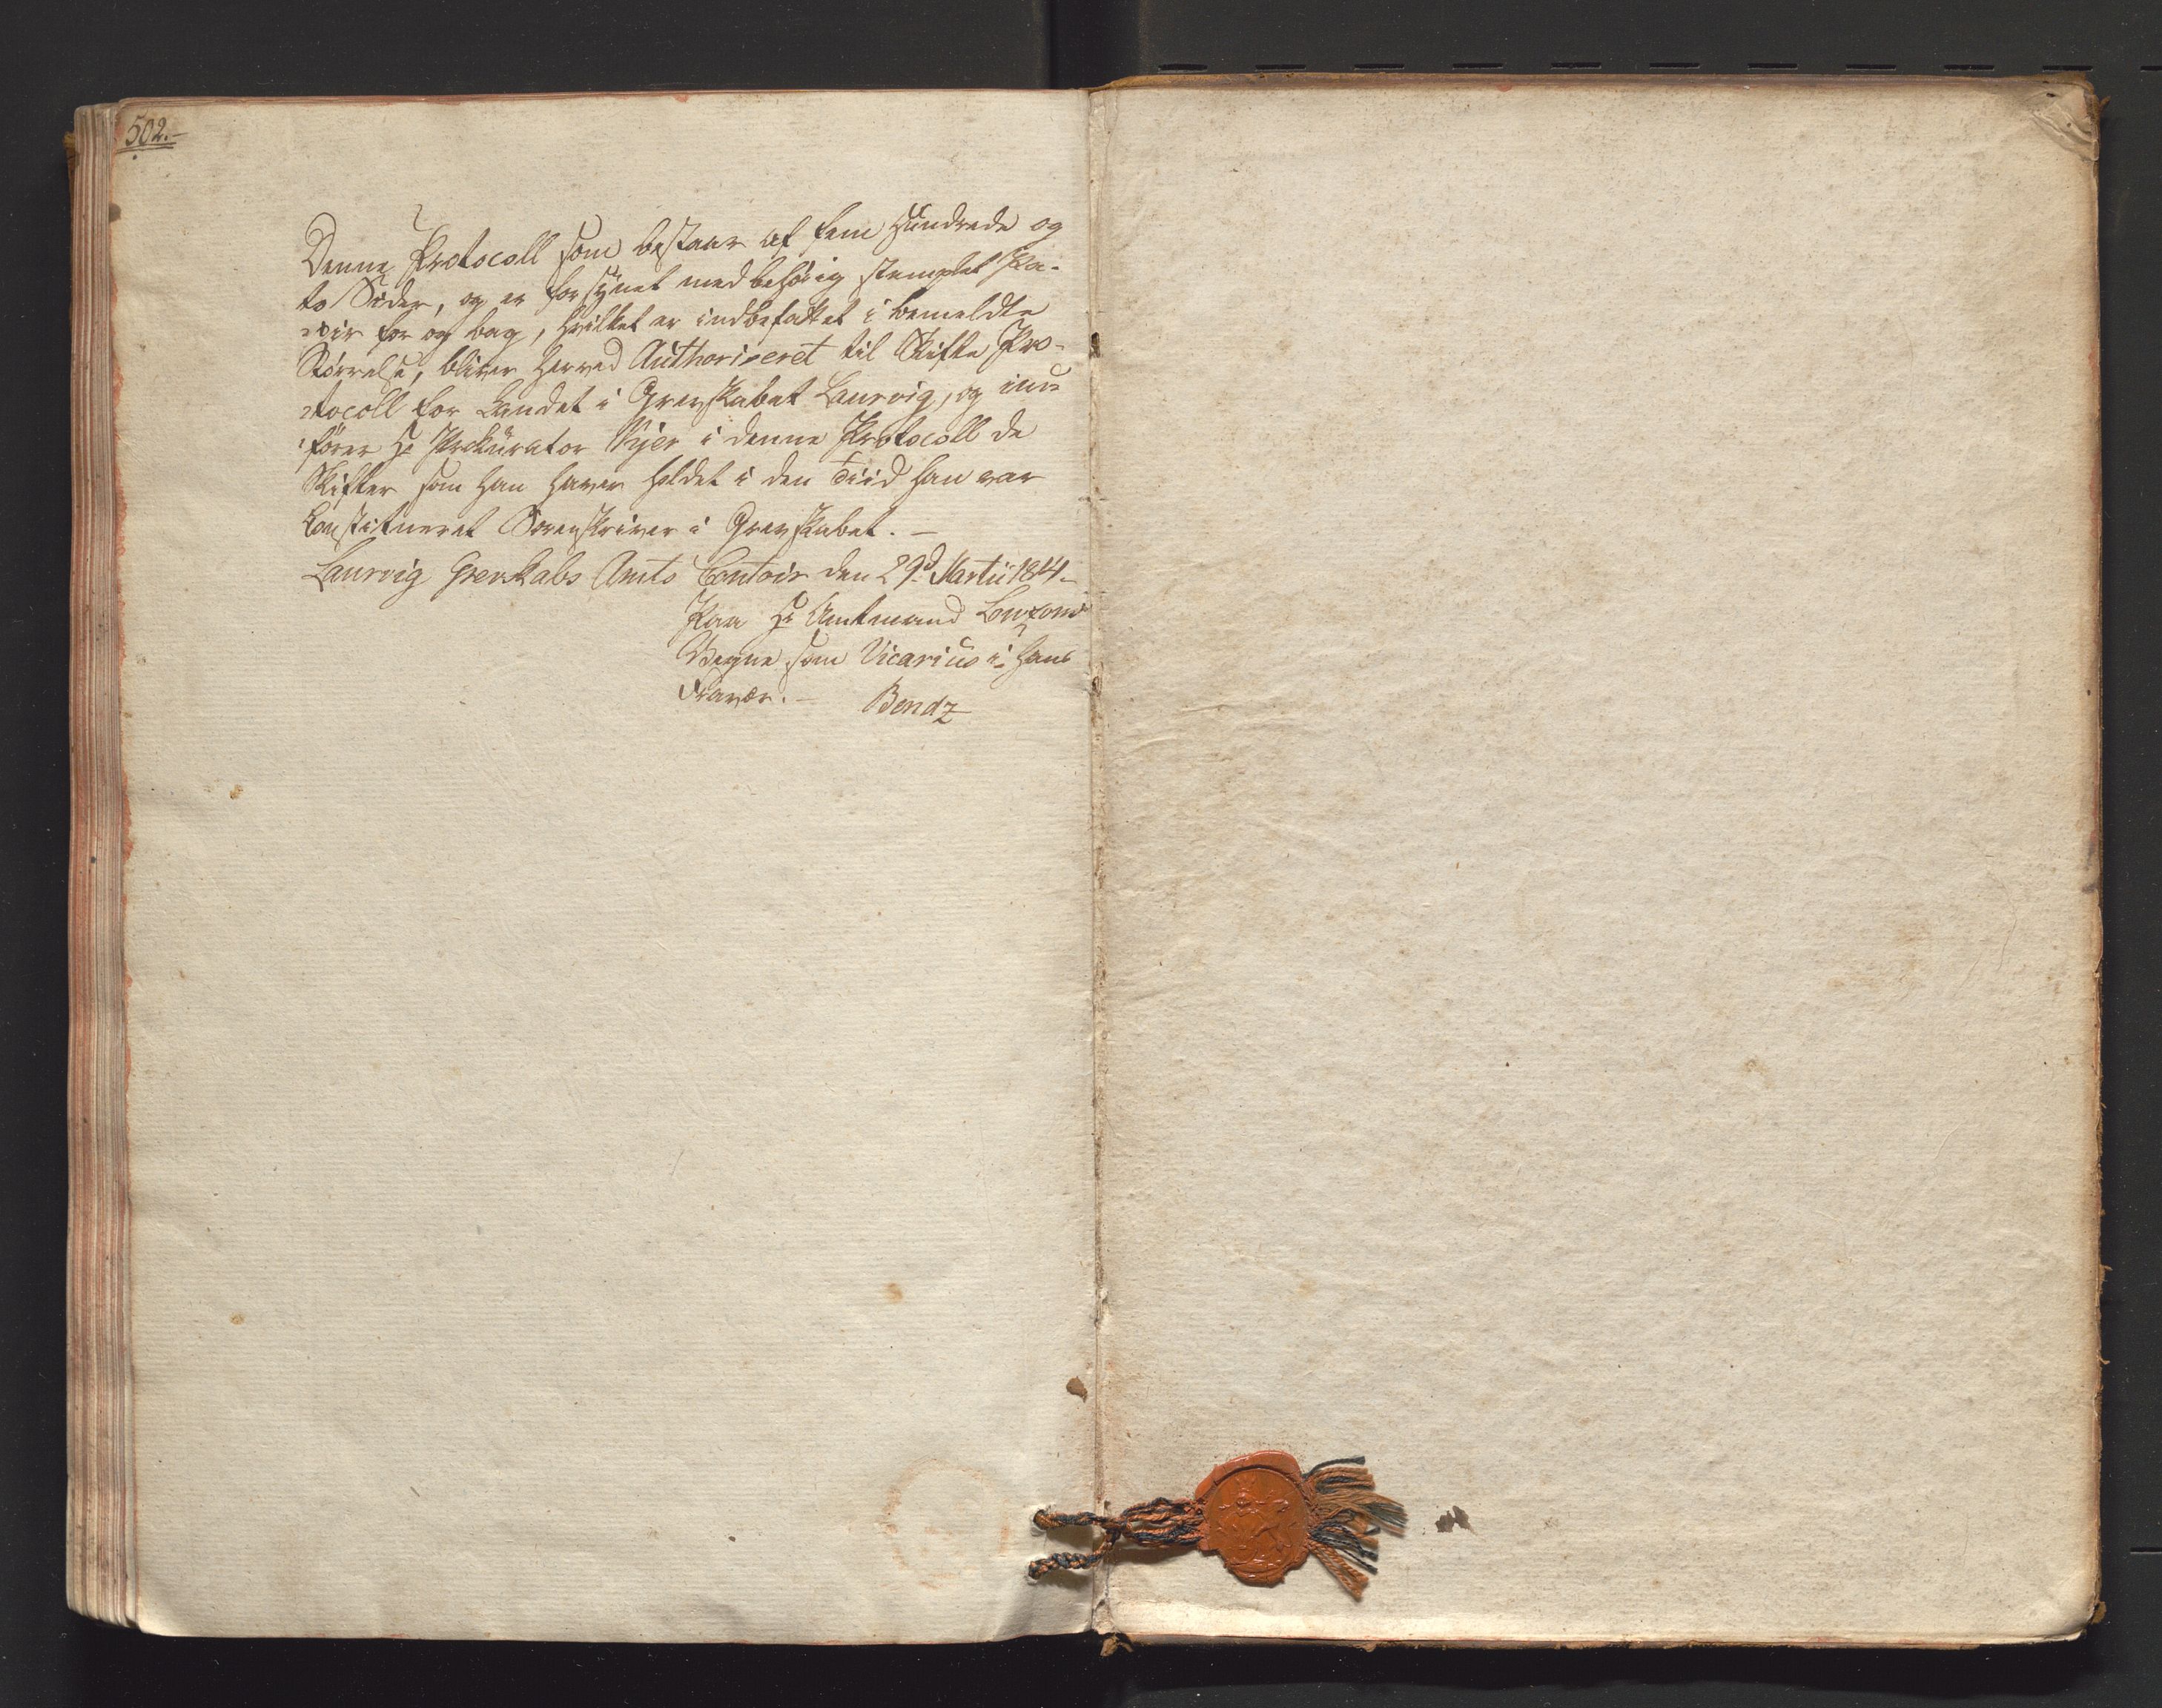 502.-
Denne Protocoll som bestaar af fem Hundrede og
to Sider, og er forsynet med behörig stemplet Pa-
pir for og bag, hvilket er indbefattet i bemeldte
Störrelse, bliver herved Authoriseret til Skifte Pro-
tocoll for Landet i Grevskabet Laurvig, og ind-
förer Hr Prokurator Kjer i denne Protocoll de
Skifter som han haver holdet i den Tiid han var
Constitueret Sorenskriver i Grevskabet. -
Laurvig Grevskabs Amts Contoir den 29d Martii 1814-
Paa Hr Amtmand
Vegne som Vicarius i hans
Fravær. - Bendz